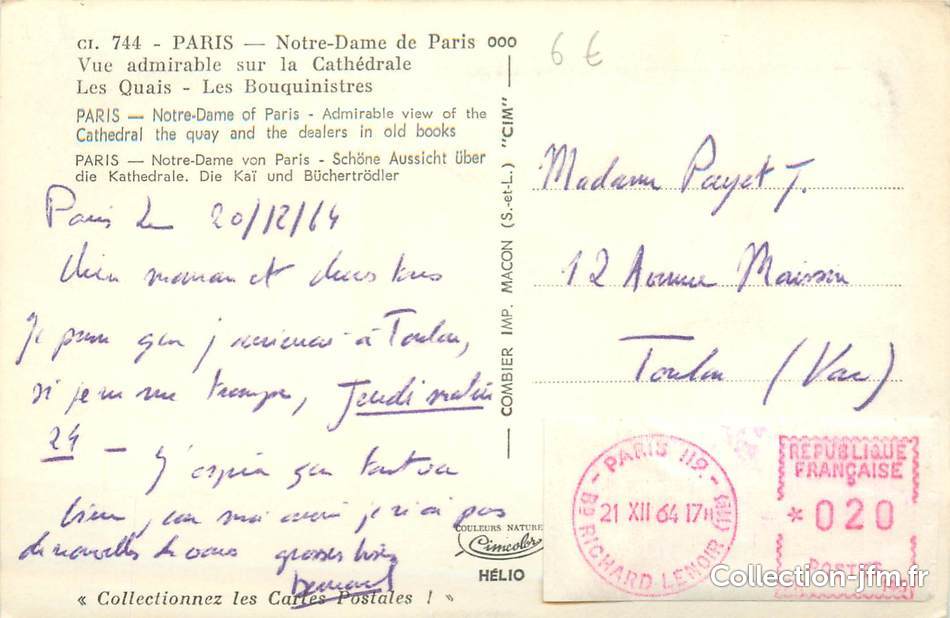 CI. 744 - PARIS — Notre-Dame de Paris
Vue admirable sur la Cathédrale
Les Quais - Les Bouquinistres
PARIS — Notre-Dame of Paris - Admirable view of the
Cathedral the quay and the dealers in old books
PARIS — Notre-Dame von Paris - Schöne Aussicht über
die Kathedrale. Die Kaï und Büchertrödler
Paris le 20/12/64
maman et chers tous
Je pense que j'arriverai à Toulon,
si je ne me trompe, Jeudi matin
24 - J'espère que tout va
bien, car moi aussi je n'ai pas
de nouvelles de vous grosses bises
Bernard
« Collectionnez les Cartes Postales ! »
000
COMBIER IMP. MACON (S.-et-L.) "CIM"
COULEURS NATURE
Cimcolor
HÉLIO
6 €
Madame Payet J.
12 Avenue Maissin
Toulon (Var)
PARIS 119
21 XII 64 17H
Bd RICHARD LENOIR (11e)
REPUBLIQUE
FRANÇAISE
*020
POSTES
Collection-jfm.fr